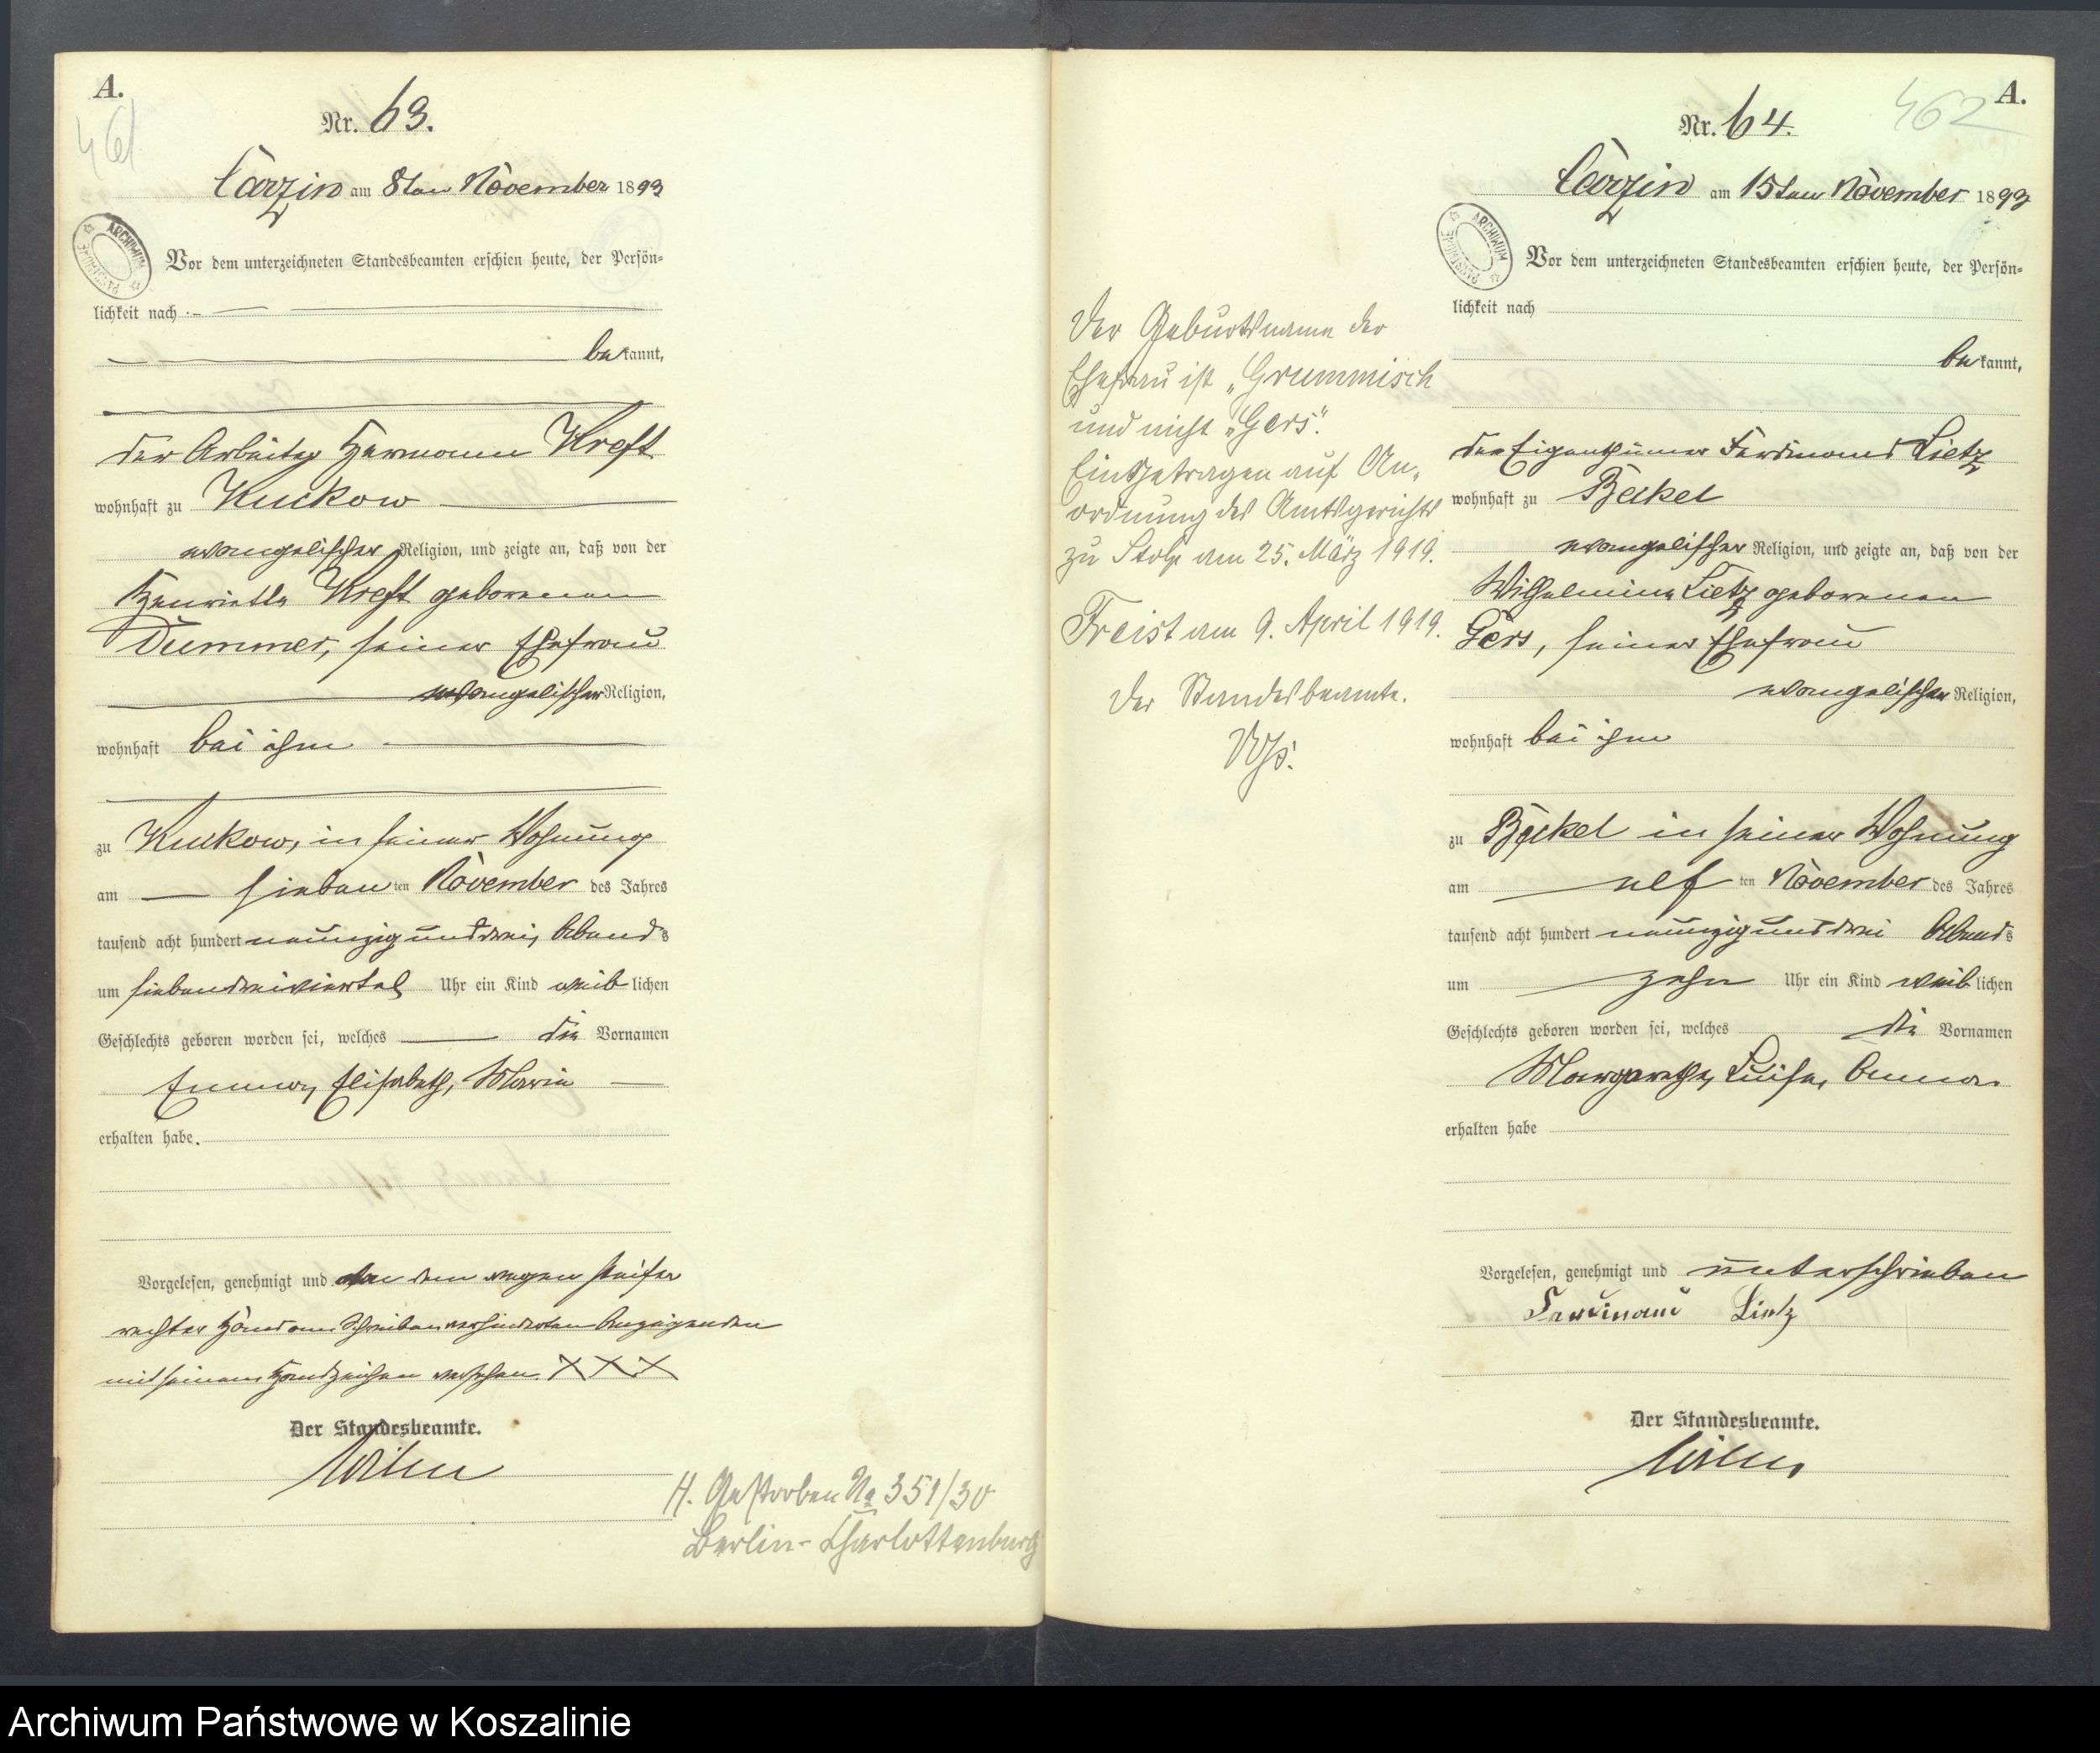 A.
461
Nr. 63.
Carzin am 8ten November 1893
ARCHIWUM PAŃSTWOWE
Vor dem unterzeichneten Standesbeamten erschien heute, der Persön-
lichkeit nach
bekannt,
der Arbeiter Hermann Kreft
wohnhaft zu Kuckow
evangelischer Religion, und zeigte an, daß von der
Henriette Kreft geborenen
Dummer, seiner Ehefrau
evangelischer Religion,
wohnhaft bei ihm
zu Kuckow, in seiner Wohnung
am siebenten November des Jahres
tausend acht hundert neunzig und drei, Abends
um siebendreiviertel Uhr ein Kind weiblichen
Geschlechts geboren worden sei, welches die Vornamen
Emma, Elisabeth, Marie
erhalten habe.
Vorgelesen, genehmigt und von dem wegen steifer
rechter Hand am Schreiben verhinderten Anzeigenden
mit seinem Handzeichen versehen. XXX
Der Standesbeamte.
H. Gestorben No 351/30
Berlin-Charlottenburg
Der Geburtsname der
Ehefrau ist „Grummisch
und nicht „Gers".
Eingetragen auf An-
ordnung des Amtsgerichts
zu Stolp am 25. März 1919.
Freist am 9. April 1919.
Der Standesbeamte.
A.
462
Nr. 64.
Carzin am 15ten November 1893
ARCHIWUM PAŃSTWOWE
Vor dem unterzeichneten Standesbeamten erschien heute, der Persön-
lichkeit nach
bekannt,
der Eigenthümer Ferdinand Lietz
wohnhaft zu Beckel
evangelischer Religion, und zeigte an, daß von der
Wilhelmine Lietz geborenen
Gers, seiner Ehefrau
evangelischer Religion,
wohnhaft bei ihm
zu Beckel in seiner Wohnung
am elften November des Jahres
tausend acht hundert neunzig und drei Abends
um zehn Uhr ein Kind weiblichen
Geschlechts geboren worden sei, welches die Vornamen
Margarethe, Luise, Anna
erhalten habe
Vorgelesen, genehmigt und unterschrieben
Ferdinand Lietz
Der Standesbeamte.
Archiwum Państwowe w Koszalinie